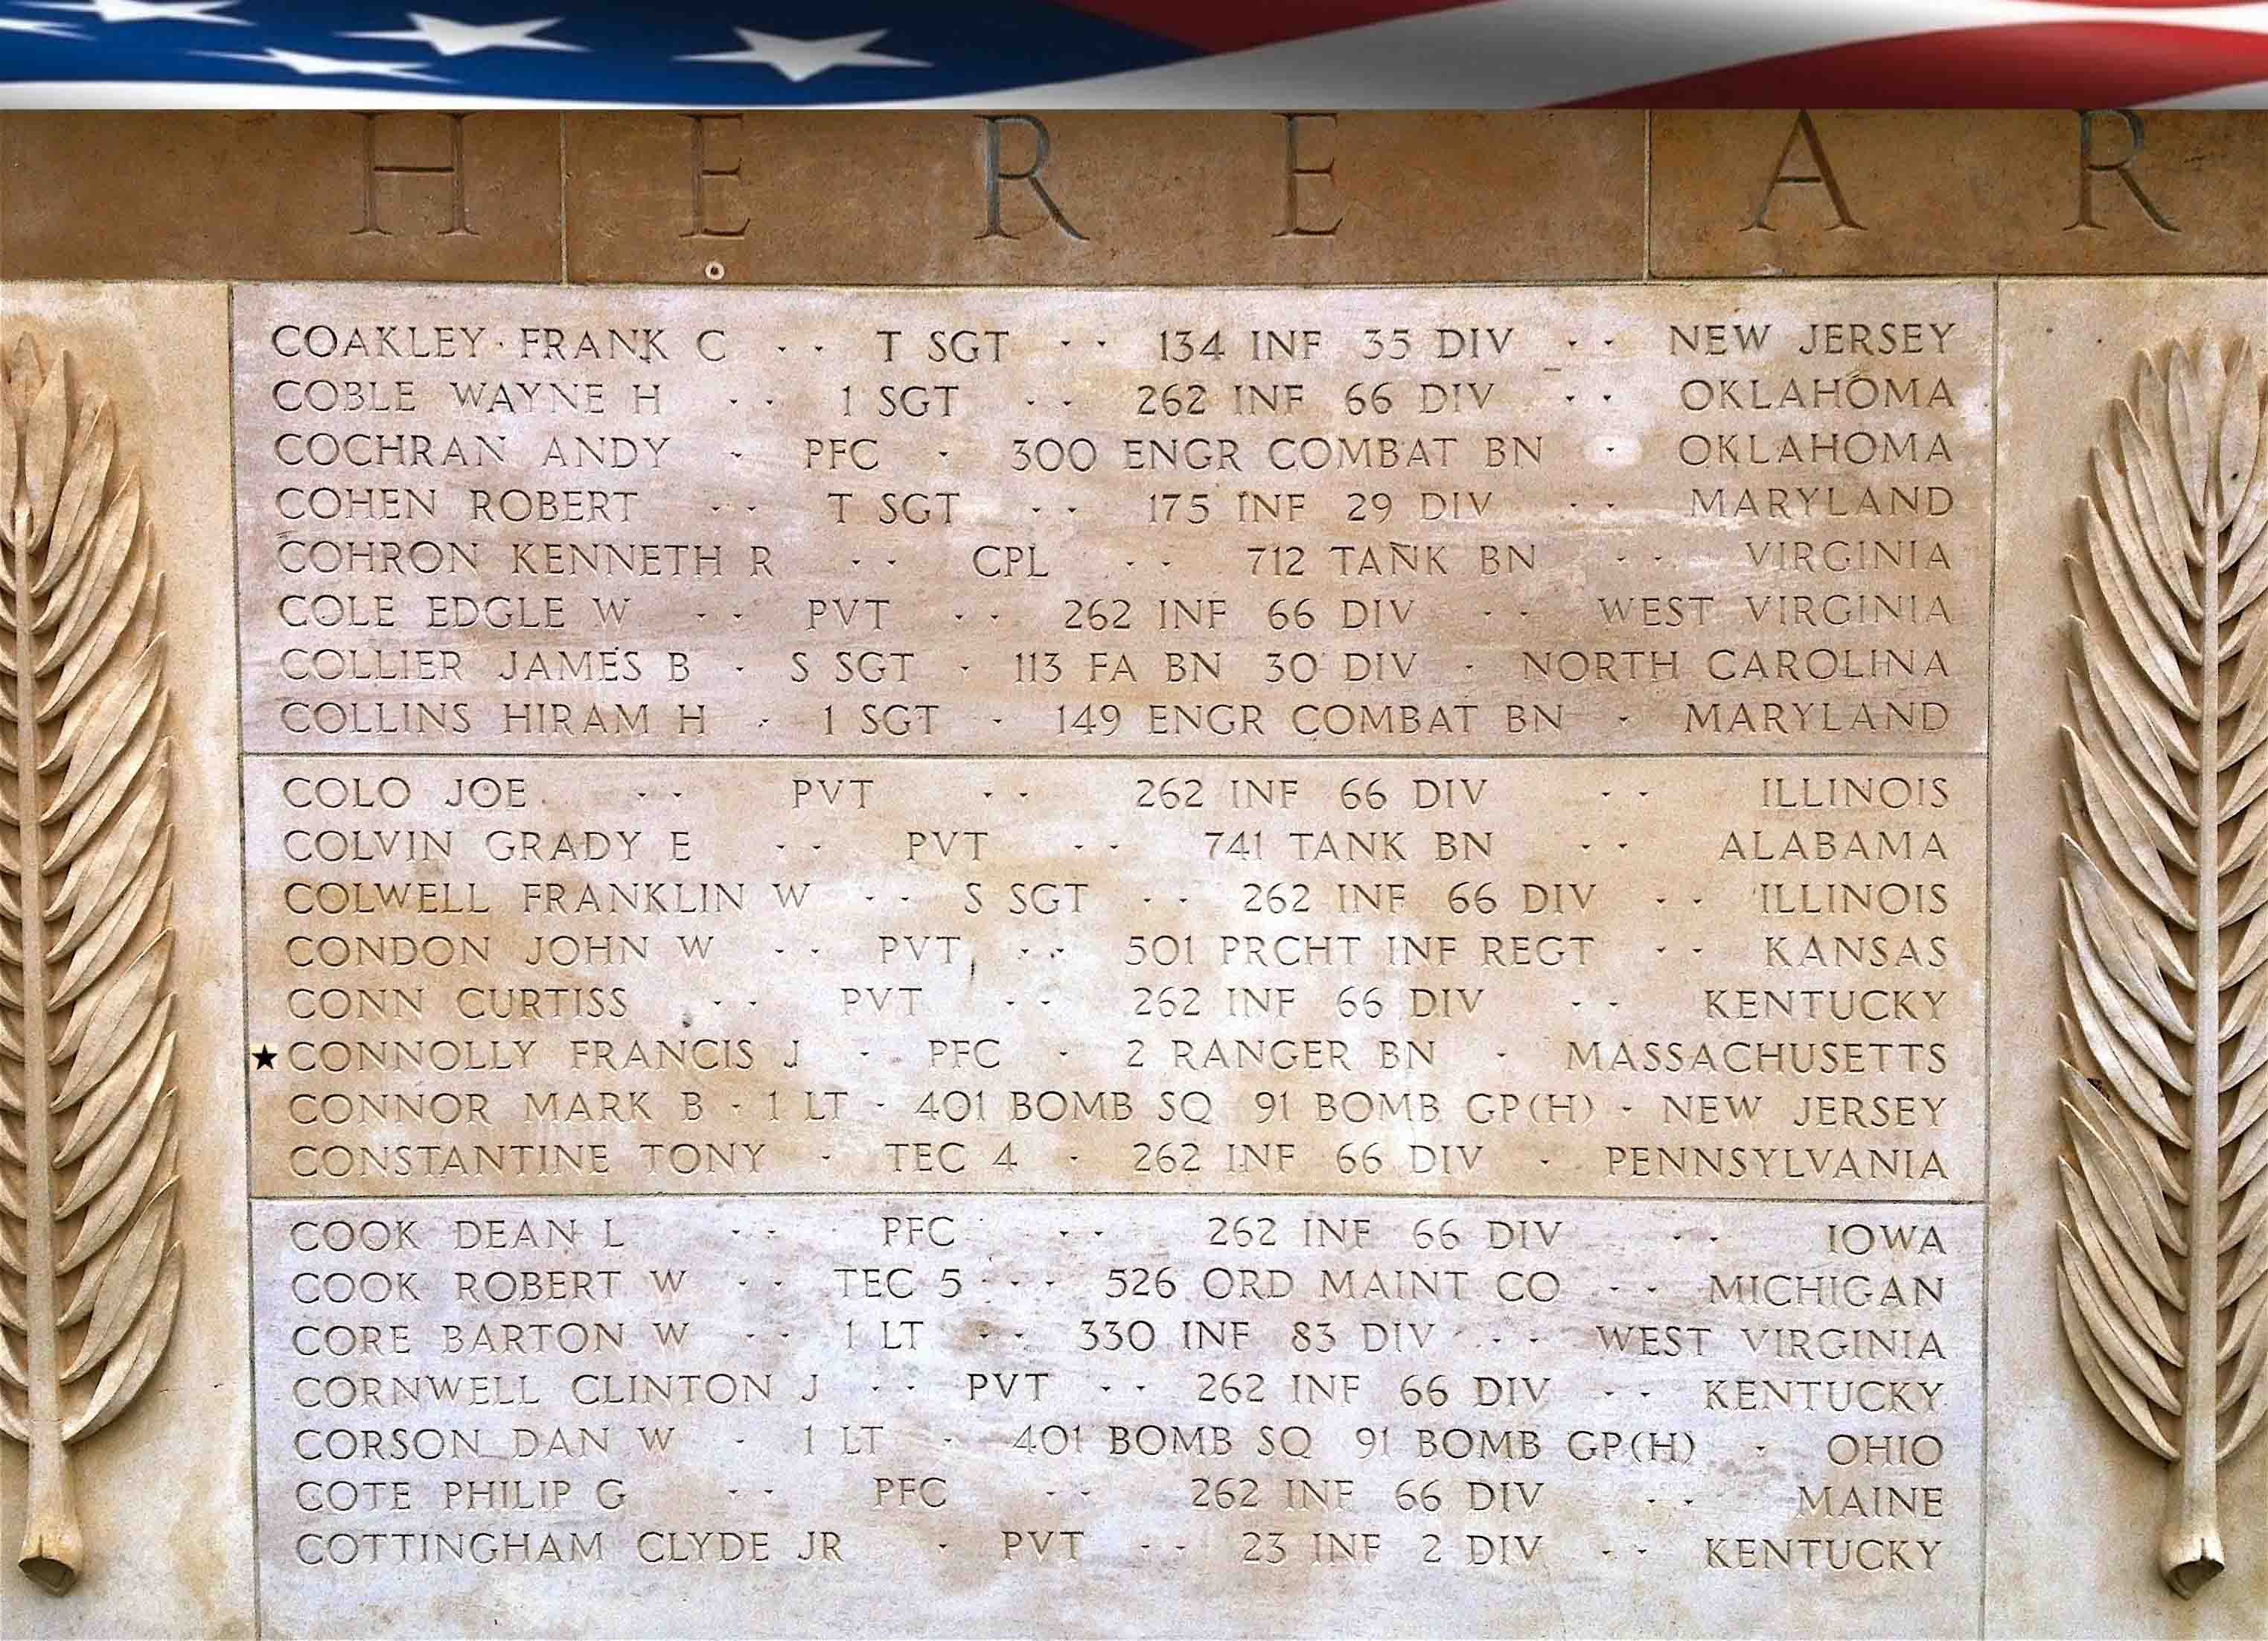 HERE AR
COAKLEY FRANK C · · T SGT · · 134 INF 35 DIV · · NEW JERSEY
COBLE WAYNE H · · 1 SGT · · 262 INF 66 DIV · · OKLAHOMA
COCHRAN ANDY · PFC · 300 ENGR COMBAT BN · OKLAHOMA
COHEN ROBERT · · T SGT · · 175 INF 29 DIV · · MARYLAND
COHRON KENNETH R · · CPL · · 712 TANK BN · · VIRGINIA
COLE EDGLE W · · PVT · · 262 INF 66 DIV · · WEST VIRGINIA
COLLIER JAMES B · S SGT · 113 FA BN 30 DIV · NORTH CAROLINA
COLLINS HIRAM H · 1 SGT · 149 ENGR COMBAT BN · MARYLAND
COLO JOE · · PVT · · 262 INF 66 DIV · · ILLINOIS
COLVIN GRADY E · · PVT · · 741 TANK BN · · ALABAMA
COLWELL FRANKLIN W · · S SGT · · 262 INF 66 DIV · · ILLINOIS
CONDON JOHN W · · PVT · · 501 PRCHT INF REGT · · KANSAS
CONN CURTISS · · PVT · · 262 INF 66 DIV · · KENTUCKY
★ CONNOLLY FRANCIS J · PFC · 2 RANGER BN · MASSACHUSETTS
CONNOR MARK B · 1 LT · 401 BOMB SQ 91 BOMB GP(H) · NEW JERSEY
CONSTANTINE TONY · TEC 4 · 262 INF 66 DIV · PENNSYLVANIA
COOK DEAN L · · PFC · · 262 INF 66 DIV · · IOWA
COOK ROBERT W · · TEC 5 · · 526 ORD MAINT CO · · MICHIGAN
CORE BARTON W · · 1 LT · · 330 INF 83 DIV · · WEST VIRGINIA
CORNWELL CLINTON J · · PVT · · 262 INF 66 DIV · · KENTUCKY
CORSON DAN W · 1 LT · 401 BOMB SQ 91 BOMB GP(H) · OHIO
COTE PHILIP G · · PFC · · 262 INF 66 DIV · · MAINE
COTTINGHAM CLYDE JR · PVT · · 23 INF 2 DIV · · KENTUCKY